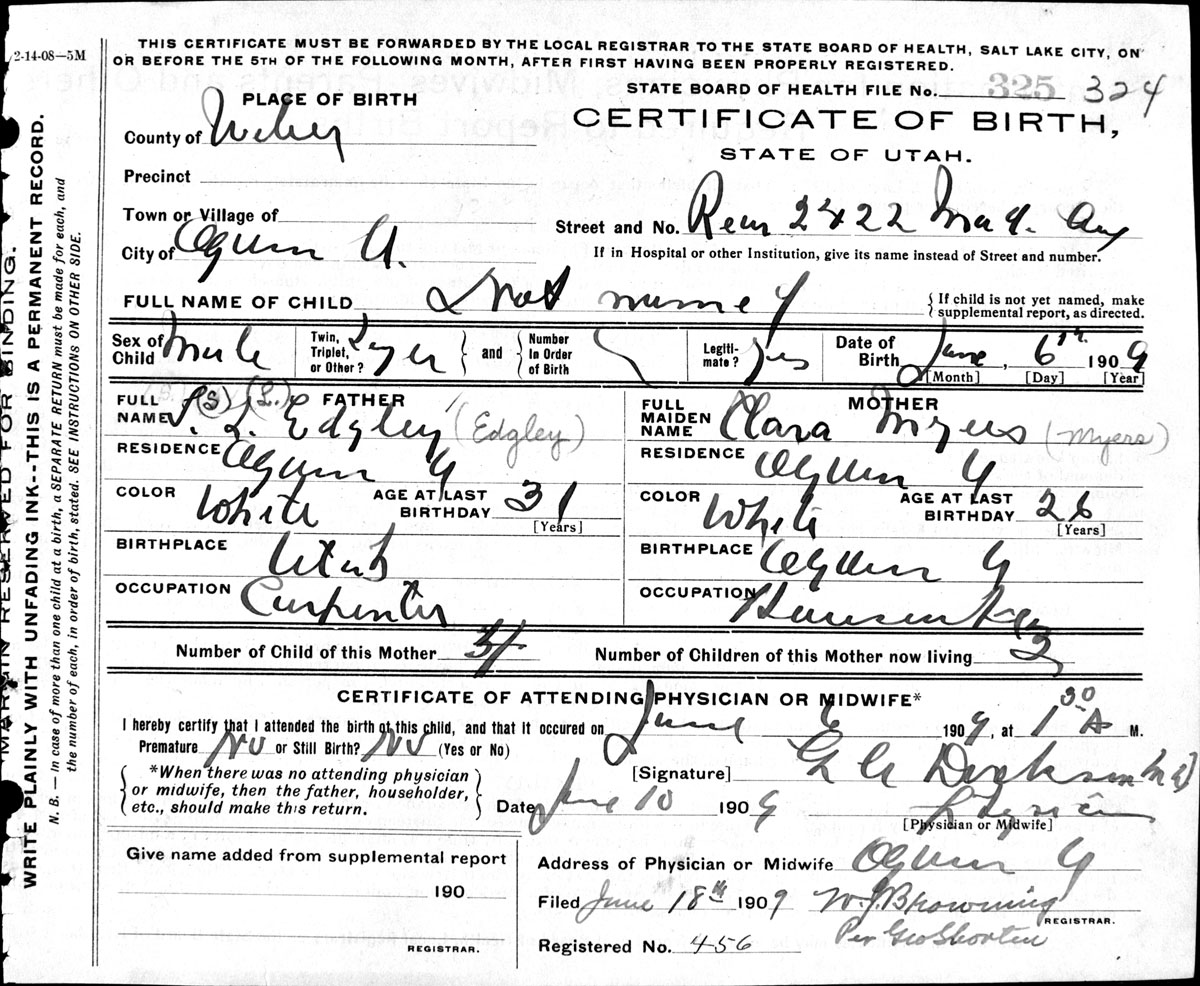 2-14-08—5M
THIS CERTIFICATE MUST BE FORWARDED BY THE LOCAL REGISTRAR TO THE STATE BOARD OF HEALTH, SALT LAKE CITY, ON
OR BEFORE THE 5TH OF THE FOLLOWING MONTH, AFTER FIRST HAVING BEEN PROPERLY REGISTERED.
STATE BOARD OF HEALTH FILE No. 325 324
PLACE OF BIRTH
CERTIFICATE OF BIRTH,
STATE OF UTAH.
County of Weber
Precinct
Town or Village of
Street and No. Rear 2422 Mad. Av
City of Ogden U.
If in Hospital or other Institution, give its name instead of Street and number.
FULL NAME OF CHILD Not named
{ If child is not yet named, make
supplemental report, as directed.
Sex of Child Male
Twin, Triplet, or Other?
and
Number in Order of Birth
Legiti-mate? Yes
Date of Birth June, 6th 1909
[Month] [Day] [Year]
FATHER
FULL NAME S. L. Edgley (Edgley)
(S) (L.)
RESIDENCE Ogden U
COLOR White AGE AT LAST BIRTHDAY 31
[Years]
BIRTHPLACE Utah
OCCUPATION Carpenter
MOTHER
FULL MAIDEN NAME Clara Myers (Myers)
RESIDENCE Ogden U
COLOR White AGE AT LAST BIRTHDAY 26
[Years]
BIRTHPLACE Ogden U
OCCUPATION
Number of Child of this Mother 3
Number of Children of this Mother now living 3
CERTIFICATE OF ATTENDING PHYSICIAN OR MIDWIFE*
I hereby certify that I attended the birth of this child, and that it occured on June 6 1909, at 1 30 A M.
Premature No or Still Birth? No (Yes or No)
*When there was no attending physician
or midwife, then the father, householder,
etc., should make this return.
[Signature] Dickson M D
Date June 10 1909
[Physician or Midwife]
Give name added from supplemental report
190
REGISTRAR.
Address of Physician or Midwife Ogden U
Filed June 18th 1909 W. J. Browning
REGISTRAR.
Per Geo Shorten
Registered No. 456
MARGIN RESERVED FOR BINDING.
WRITE PLAINLY WITH UNFADING INK--THIS IS A PERMANENT RECORD.
N. B. — In case of more than one child at a birth, a SEPARATE RETURN must be made for each, and
the number of each, in order of birth, stated. SEE INSTRUCTIONS ON OTHER SIDE.